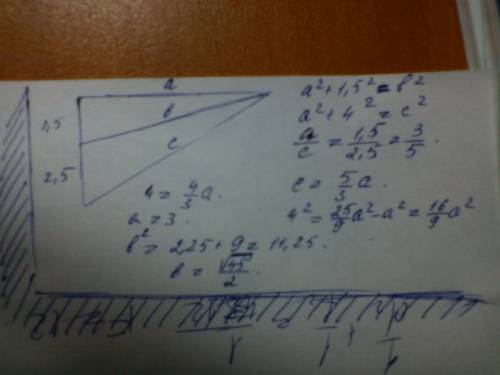 a
b
c
1,5
2,5
a² + 1,5² = b²
a² + 4² = c²
a/c = 1,5/2,5 = 3/5.
c = 5/3 a.
4² = 25/9 a² - a² = 16/9 a²
4 = 4/3 a.
a = 3.
b² = 2,25 + 9 = 11,25.
b = √45/2.